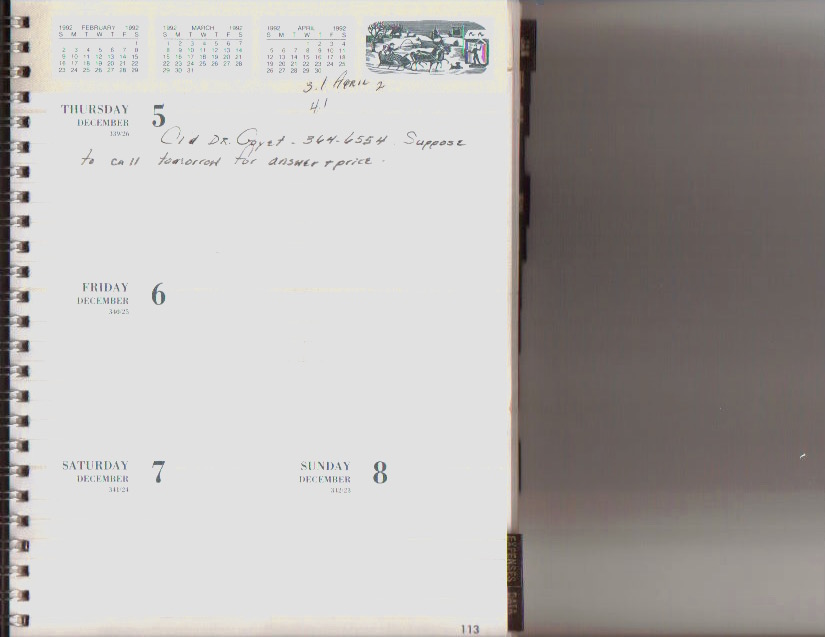 1992 FEBRUARY 1992
S M T W T F S
1
2 3 4 5 6 7 8
9 10 11 12 13 14 15
16 17 18 19 20 21 22
23 24 25 26 27 28 29
1992 MARCH 1992
S M T W T F S
1 2 3 4 5 6 7
8 9 10 11 12 13 14
15 16 17 18 19 20 21
22 23 24 25 26 27 28
29 30 31
1992 APRIL 1992
S M T W T F S
1 2 3 4
5 6 7 8 9 10 11
12 13 14 15 16 17 18
19 20 21 22 23 24 25
26 27 28 29 30
3.1 APRIL 2
4.1
THURSDAY 5
DECEMBER
339/26
Cld DR. - 364-6554. Suppose
to call tomorrow for answer + price.
FRIDAY 6
DECEMBER
340/25
SATURDAY 7
DECEMBER
341/24
SUNDAY 8
DECEMBER
342/23
EXPENSES
DATA
113